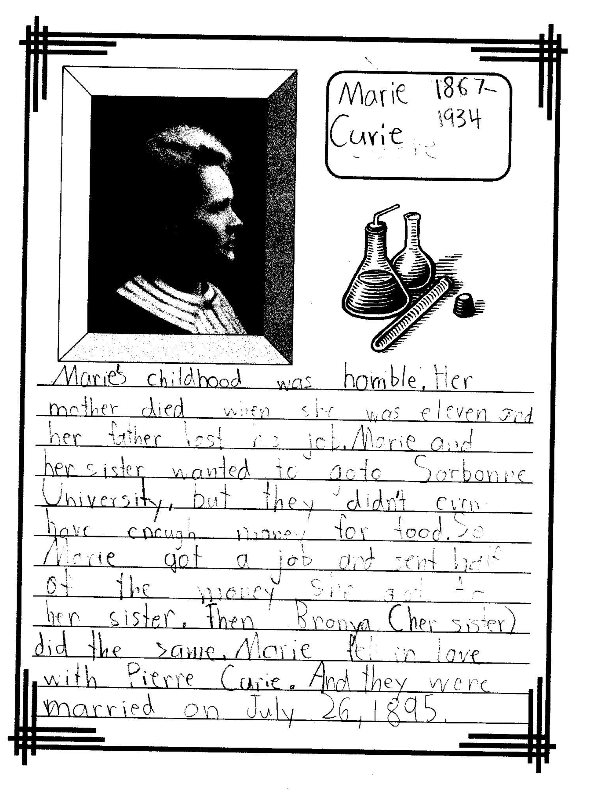 Marie 1867-
Curie 1934
Marie's childhood was horrible. Her
mother died when she was eleven and
her father lost his job. Marie and
her sister wanted to go to Sorbonne
University, but they didn't even
have enough money for food. So
Marie got a job and sent half
of the money she got to
her sister. Then Bronya (her sister)
did the same. Marie fell in love
with Pierre Curie. And they were
married on July 26, 1895.